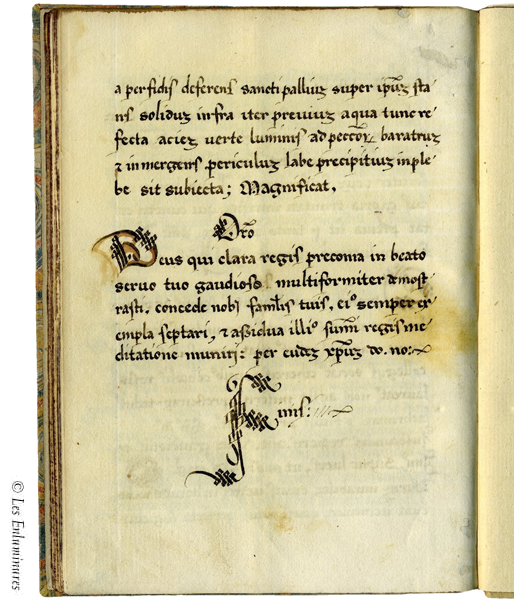 a perfidis deferens sancti palliuʒ super ip̃uʒ sta
ns solidus infra iter previus aqua tunc re
fecta acieʒ verte luminis ad pecc̃oꝝ baratruʒ
⁊ inmergens periculus labe precipitius in ple
be sit subiecta; Magnificat.
Or̃o
Deus qui clara regis preconia in beato
seruo tuo gaudioso multiformiter demõst
rasti. concede nobꝭ famĩlis tuis, eiꝰ semper ex
empla septari, ⁊ assidua illiꝰ sum̃i regis me
ditatione muniri: per eũdeʒ xp̃uʒ do. no:
Finis:
© Les Enluminures